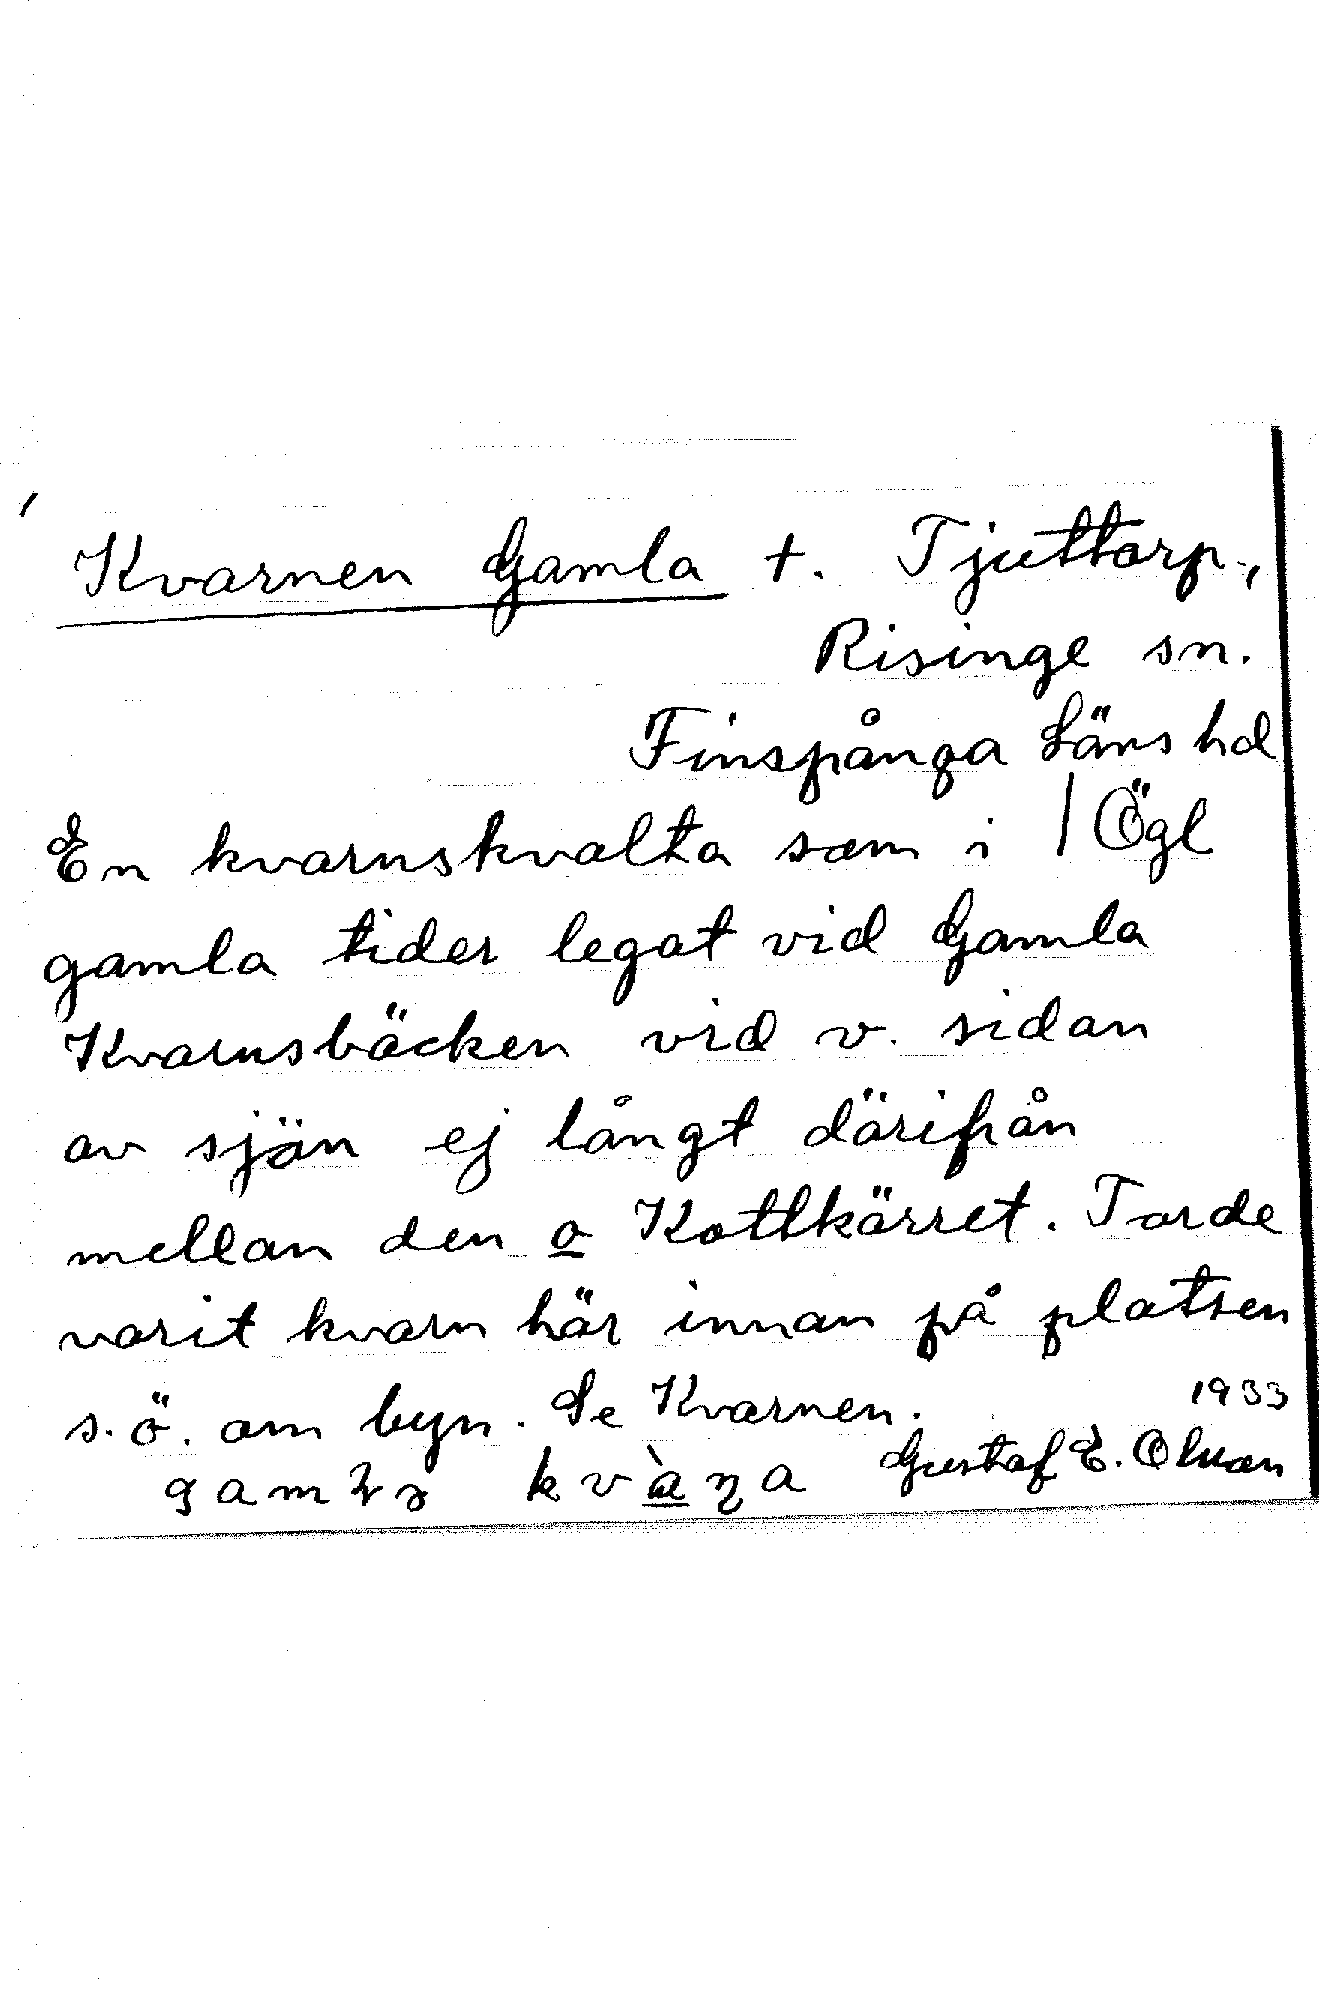 Kvarnen Gamla †. Tjuttorp.,
Risinge sn.
Finspånga Läns hd
En kvarnskvalta som i / Ögl
gamla tider legat vid Gamla
Kvarnsbäcken vid v. sidan
av sjön ej långt därifrån
mellan den o Kottkärret. Torde
varit kvarn här innan på platsen
s.ö. om byn. Se Kvarnen. 1933
Gustaf E. Olsson